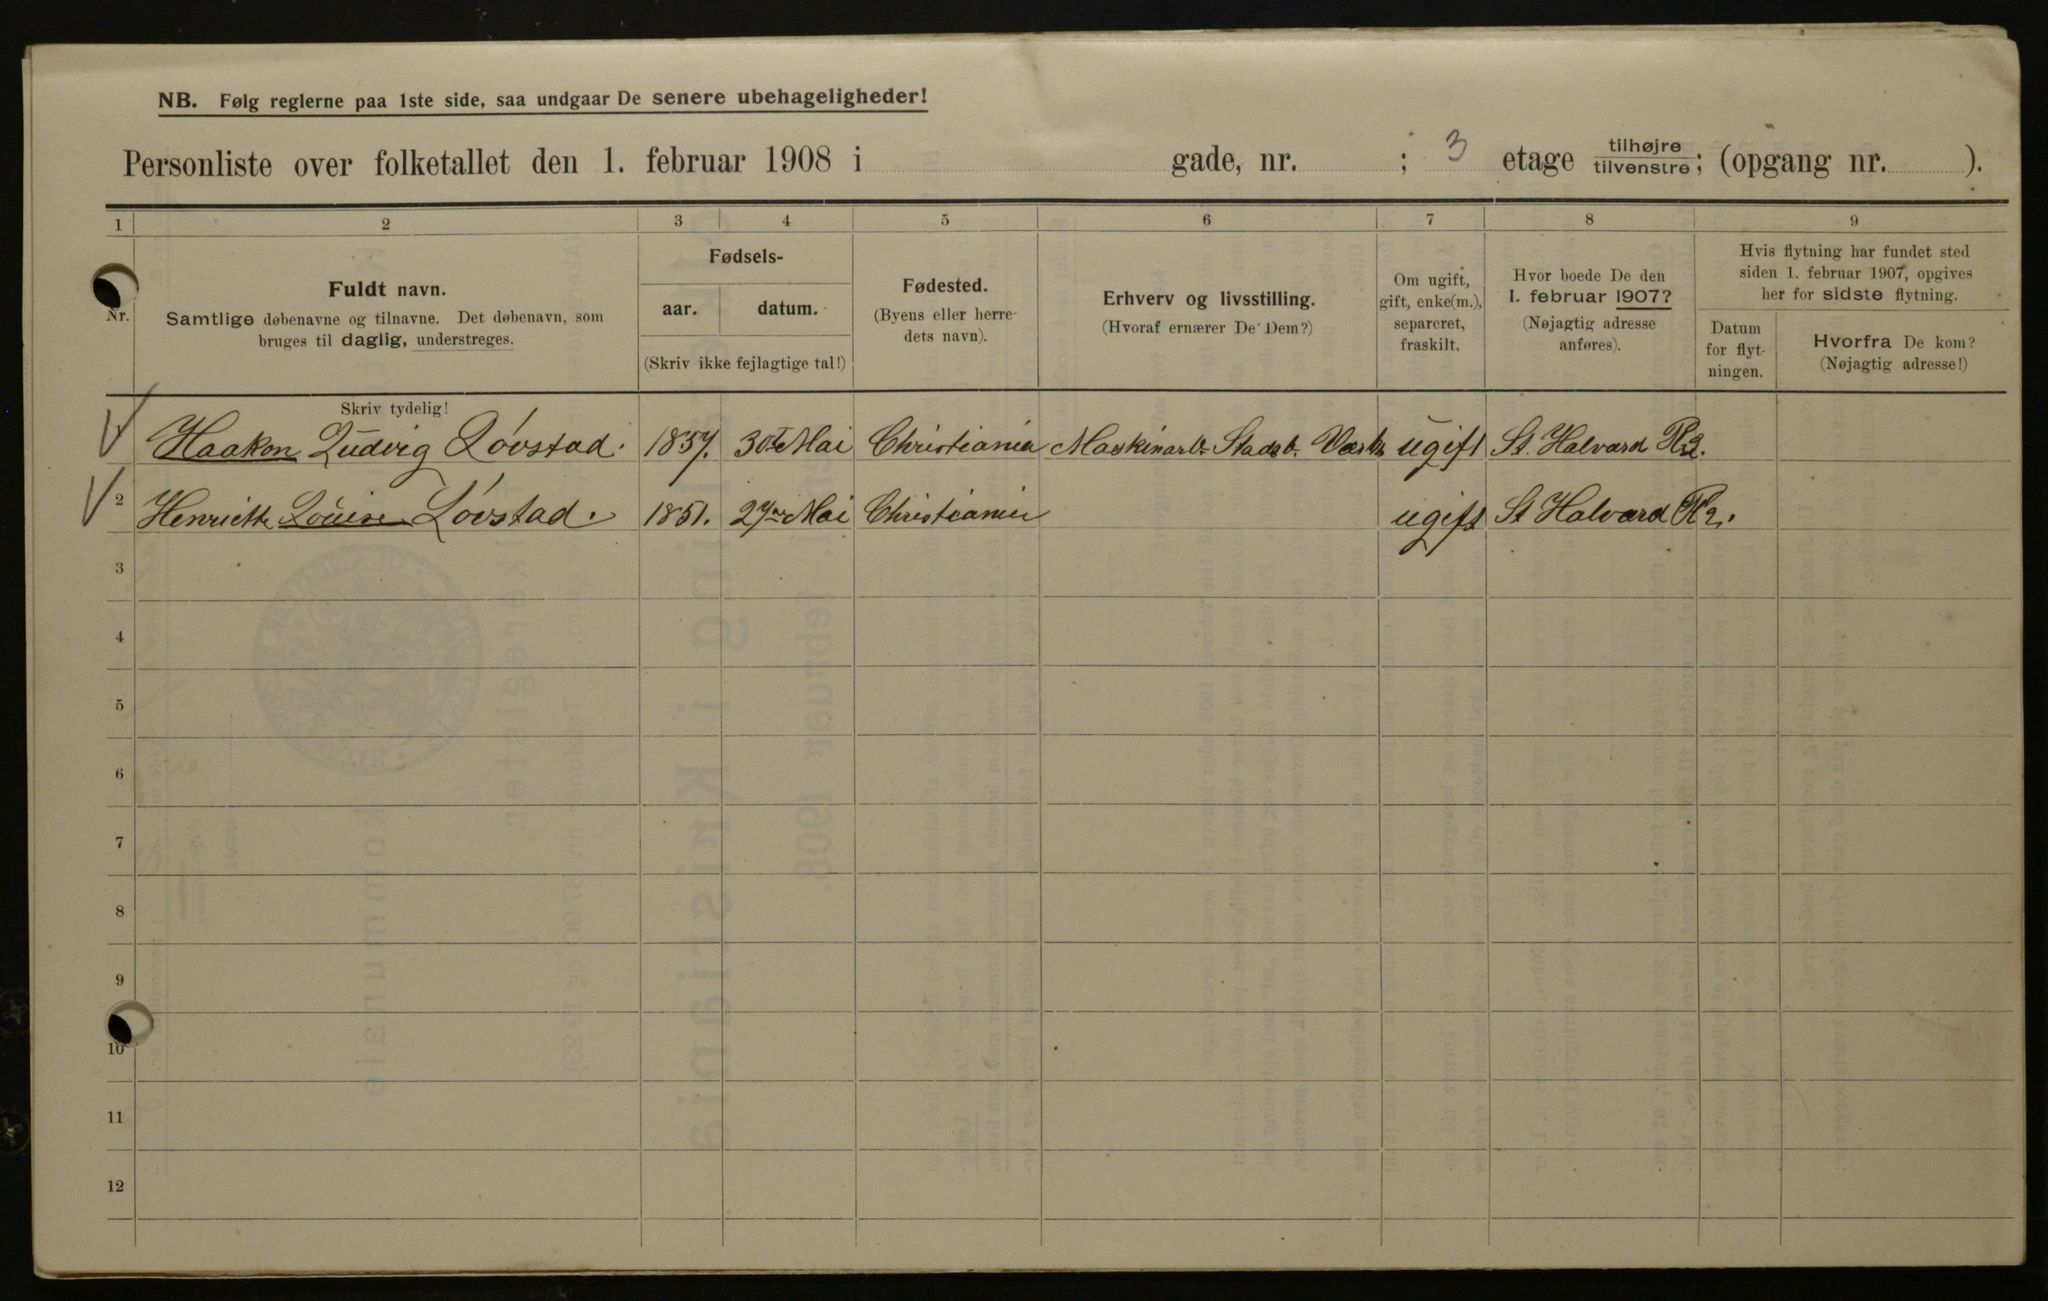 NB. Følg reglerne paa 1ste side, saa undgaar De senere ubehageligheder!
Personliste over folketallet den 1. februar 1908 i gade, nr. ; 3 etage tilhøjre tilvenstre; (opgang nr. ).
1 2 3 4 5 6 7 8 9
Nr.
Fuldt navn.
Samtlige døbenavne og tilnavne. Det døbenavn, som
bruges til daglig, understreges.
Fødsels-
aar. datum.
(Skriv ikke fejlagtige tal!)
Fødested.
(Byens eller herre-
dets navn).
Erhverv og livsstilling.
(Hvoraf ernærer De Dem?)
Om ugift,
gift, enke(m.),
separeret,
fraskilt.
Hvor boede De den
1. februar 1907?
(Nøjagtig adresse
anføres).
Hvis flytning har fundet sted
siden 1. februar 1907, opgives
her for sidste flytning.
Datum
for flyt-
ningen.
Hvorfra De kom?
(Nøjagtig adresse!)
Skriv tydelig!
Haakon Ludvig Lövstad. 1857. 30te Mai Christiania Maskinarb. Stadsb. ugift St. Halvard Pl 2.
2 Henriette Louise Lövstad. 1851. 27de Mai Christiania ugift St Halvard Pl 2.
3
4
5
6
7
8
9
10
11
12